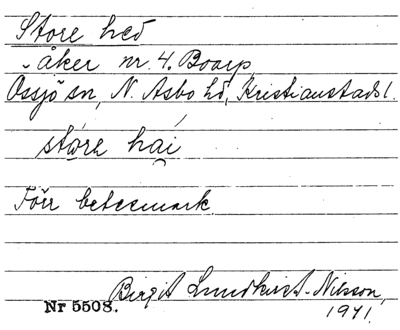 Store hed
- åker nr. 4. Boarp
Össjö sn, N. Åsbo hd, Kristianstads l.
stóra hái
Förr betesmark
Birgit Lundkvist-Nilsson,
Nr 5508.
1941.